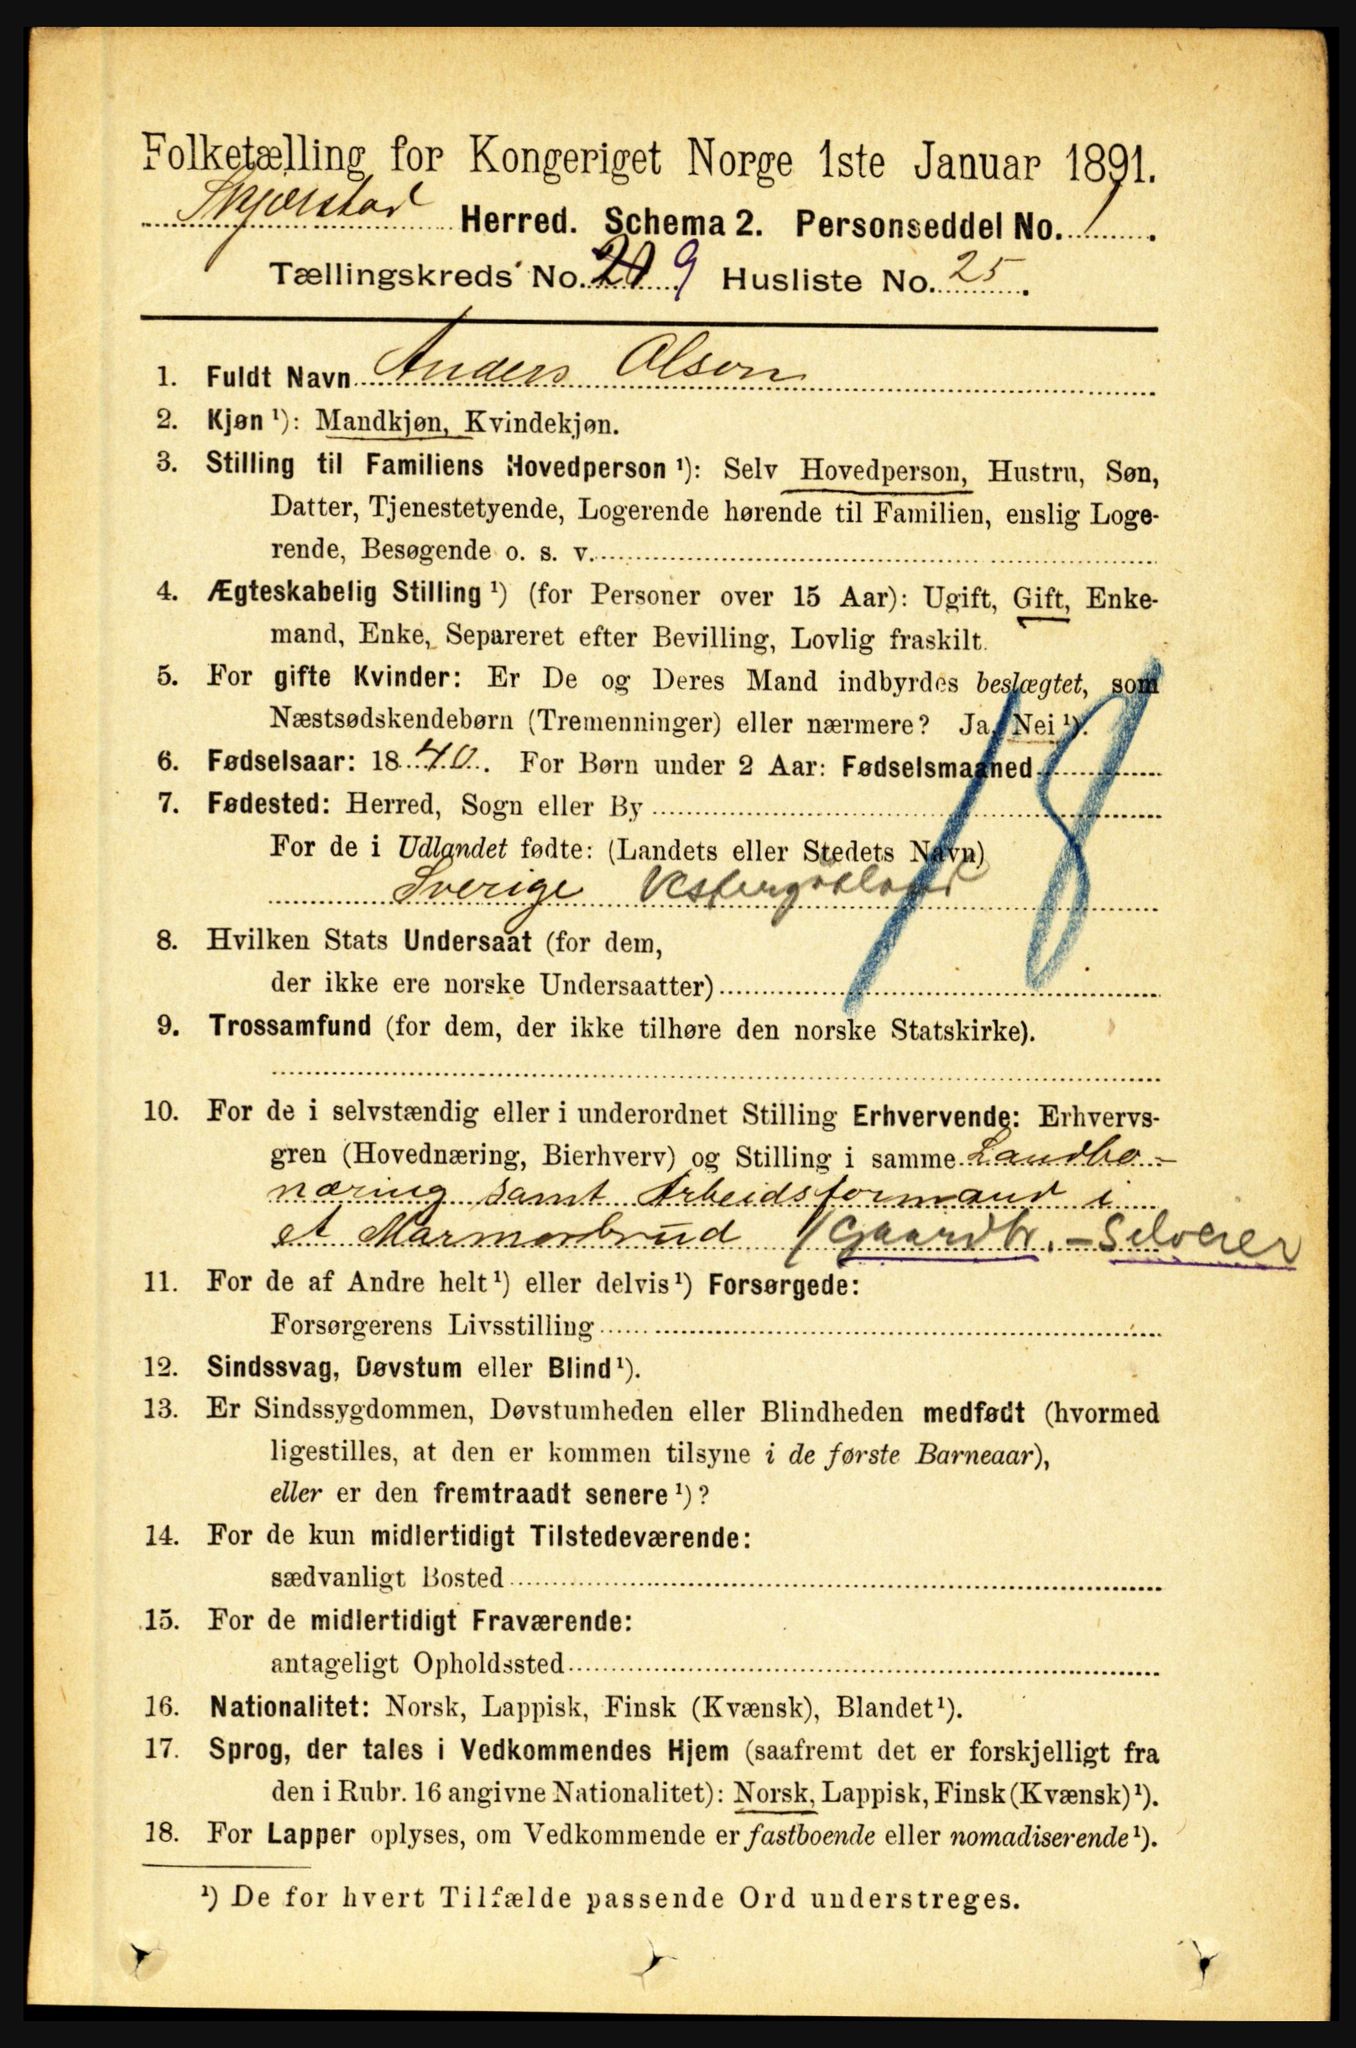 Folketælling for Kongeriget Norge 1ste Januar 1891.
Skjerstad Herred. Schema 2. Personseddel No. 1.
Tællingskreds No. 9 Husliste No. 25.
1. Fuldt Navn Anders Olson
2. Kjøn ¹): Mandkjøn, Kvindekjøn.
3. Stilling til Familiens Hovedperson ¹): Selv Hovedperson, Hustru, Søn,
Datter, Tjenestetyende, Logerende hørende til Familien, enslig Loge-
rende, Besøgende o. s. v.
4. Ægteskabelig Stilling ¹) (for Personer over 15 Aar): Ugift, Gift, Enke-
mand, Enke, Separeret efter Bevilling, Lovlig fraskilt.
5. For gifte Kvinder: Er De og Deres Mand indbyrdes beslægtet, som
Næstsødskendebørn (Tremenninger) eller nærmere? Ja, Nei ¹).
6. Fødselsaar: 1840. For Børn under 2 Aar: Fødselsmaaned
7. Fødested: Herred, Sogn eller By
For de i Udlandet fødte: (Landets eller Stedets Navn)
Sverige Vestergötland
18
8. Hvilken Stats Undersaat (for dem,
der ikke ere norske Undersaatter)
9. Trossamfund (for dem, der ikke tilhøre den norske Statskirke).
10. For de i selvstændig eller i underordnet Stilling Erhvervende: Erhvervs-
gren (Hovednæring, Bierhverv) og Stilling i samme Landbo-
næring samt Arbeidsformand i
et Marmorbrud / Gaardbr. - Selveier
11. For de af Andre helt ¹) eller delvis ¹) Forsørgede:
Forsørgerens Livsstilling
12. Sindssvag, Døvstum eller Blind ¹).
13. Er Sindssygdommen, Døvstumheden eller Blindheden medfødt (hvormed
ligestilles, at den er kommen tilsyne i de første Barneaar),
eller er den fremtraadt senere ¹)?
14. For de kun midlertidigt Tilstedeværende:
sædvanligt Bosted
15. For de midlertidigt Fraværende:
antageligt Opholdssted
16. Nationalitet: Norsk, Lappisk, Finsk (Kvænsk), Blandet ¹).
17. Sprog, der tales i Vedkommendes Hjem (saafremt det er forskjelligt fra
den i Rubr. 16 angivne Nationalitet): Norsk, Lappisk, Finsk (Kvænsk) ¹).
18. For Lapper oplyses, om Vedkommende er fastboende eller nomadiserende ¹).
¹) De for hvert Tilfælde passende Ord understreges.